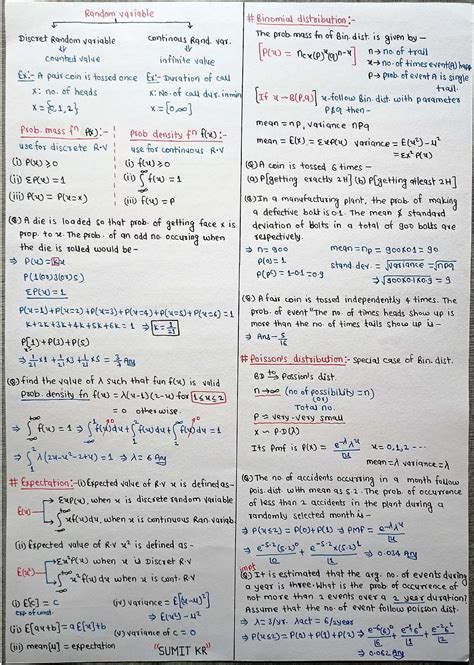 Random variable
Discret Random variable
counted value
Ex:- A pair coin is tossed once
x: no. of heads
x = {0,1,2}
continous Rand. var.
infinite value
Ex:- Duration of call
x: No. of call dur. in min
x = [0,∞]
Prob. mass fn P(x):-
use for discrete R.V
(i) P(x) ⩾ 0
(ii) ΣP(x) = 1
(iii) P(x) = P(X=x)
Prob density fn f(x):-
use for continuous R.V
(i) f(x) ⩾ 0
(ii) ∫ f(x) = 1
(iii) f(x) = P
(Q) A die is loaded so that prob. of getting face x is
prop. to x. The prob. of an odd no. occuring when
the die is rolled would be -
⇒ P(x) = kx
P(1 or 3 or 5)
ΣP(x) = 1
P(x=1)+P(x=2)+P(x=3)+P(x=4)+P(x=5)+P(x=6)=1
k+2k+3k+4k+5k+6k = 1 ⇒ k = 1/21
P(1)+P(3)+P(5)
⇒ 1/21 x1 + 1/21 x3 + 1/21 x5 = 3/7 Ans
(Q) find the value of λ such that fun f(x) is valid
Prob. density fn f(x) = λ(x-1)(2-x) for 1≤x≤2
= 0 otherwise.
⇒ ∫ f(x) = 1 ⇒ ∫ f(x)dx + ∫ f(x)dx + ∫ f(x)dx = 1
⇒ ∫ λ(2x-x²-2+x) = 1 ⇒ λ = 6 Ans
# Expectation:- (i) Expected value of R.V x is defined as -
E(x)
→ ΣxP(x), when x is discrete random variable
→ ∫ xf(x)dx, when x is continuous Ran. variab.
(ii) Expected value of R.V x² is defined as -
E(x²)
→ Σx²P(x) when x is Discret R.V
→ ∫ x²f(x)dx when x is cont. R.V
(i) E[c] = c
(ii) E[ax+b] = aE[x]+b
(iii) mean[μ] = expectation
(iv) variance = E[(x-μ)²]
⇒ E(x²) - μ²
(v) variance of c = 0
"SUMIT KR"
# Binomial distribution:-
The prob. mass fn of Bin. dist. is given by -
P(x) = nCx (p)^x (q)^n-x
n → no of trail
x → no. of times event(A) happ
P → prob of event A is single
trail.
If x~B(P,q) x-follow Bin. dist with parameter
P & q then -
mean = np, variance npq
mean = E(x) = ΣxP(x) variance = E(x²) - μ²
= Σx²P(x)
(Q) A coin is tossed 6 times -
(a) P[getting exactly 2H] (b) P[getting atleast 2H]
(Q) In a manufacturing plant, the prob. of making
a defective bolt is 0.1. The mean & standard
deviation of bolts in a total of 900 bolts are
respectively.
⇒ n = 900
mean = np = 900x0.1 = 90
stand. dev. = √variance = √npq
⇒ √900x0.1x0.9 = 9
(Q) A fair coin is tossed independently 4 times. The
prob. of event "The no. of times heads show up is
more than the no. of times tails show up is -
⇒ Ans - 5/16
# Poisson's distribution:- special case of Bin. dist.
BD to Poisson's dist.
n → ∞ (no of possibility = n)
(or)
Total no.
P → very-very small
x ~ P.D(λ)
Its Pmf is P(x) = e^-λ λ^x / x! x = 0,1,2 ----
mean = λ variance = λ
(Q) The no. of accidents occurring in a month follow
Pois. dist with mean as 5.2. The prob. of occurrence
of less than 2 accidents in the plant during a
randomly selected month is -
⇒ P(x<2) = P(0)+P(1) ⇒ PMF = e^-λ λ^x / x!
⇒ e^-5.2 (5.2)^0 / 0! + e^-5.2 x(5.2)^1 / 1! ⇒ 0.034 Ans
impt
(Q) It is estimated that the avg. no. of events during
a year is three. What is the prob of occurrence of
not more than 2 events over a 2 year duration?
Assume that the no. of event follow poisson dist.
⇒ λ = 3/yr. λact = 6/2year
⇒ P(x≤2) = P(0)+P(1)+P(2)
⇒ 0.062 Ans